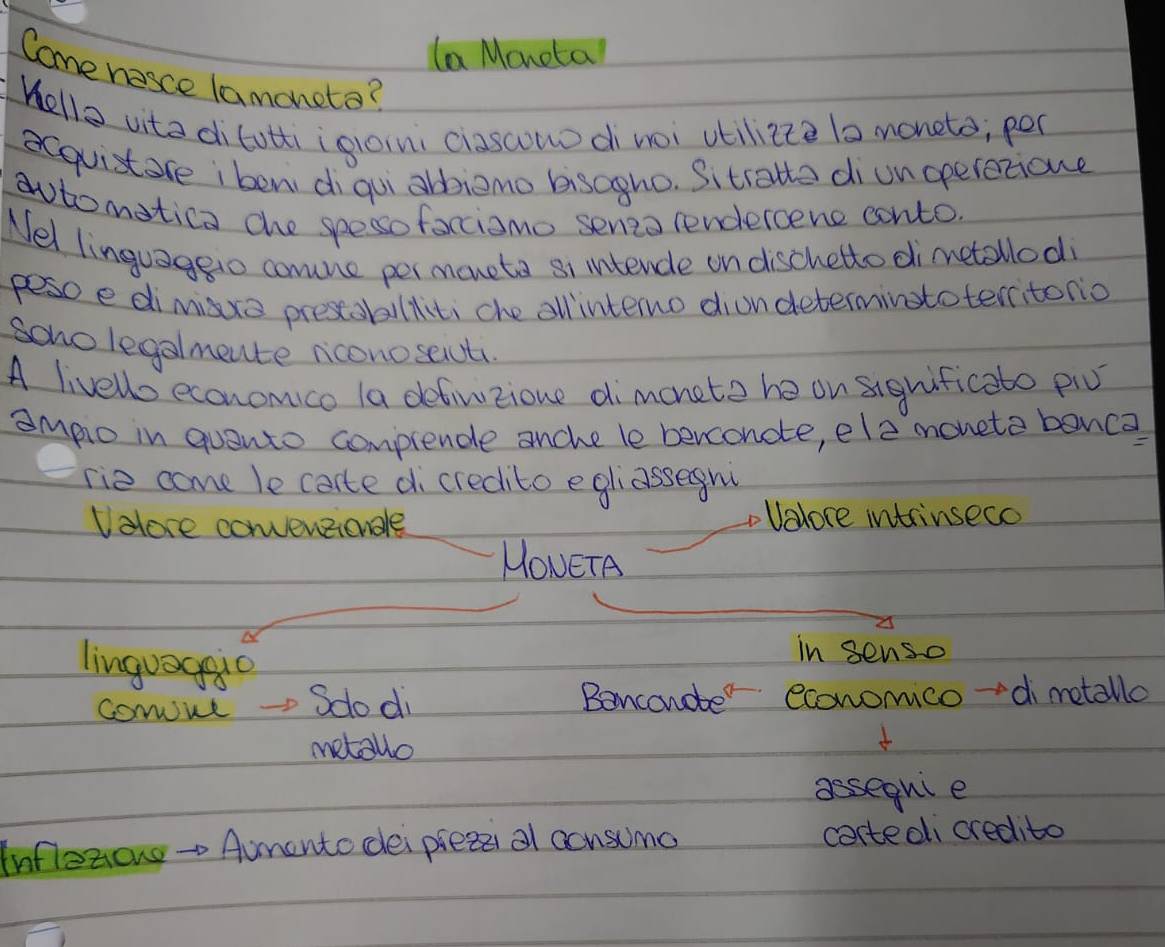 La Moneta
Come nasce la moneta?
Nella vita di tutti i giorni ciascuno di noi utilizza la moneta, per
acquistare i beni di qui abbiamo bisogno. Si tratta di un operazione
automatica che spesso facciamo senza rendercene conto.
Nel linguaggio comune per moneta si intende un dischetto di metallo di
peso e di misura prestabiliti che all'interno di un determinato territorio
sono legalmente riconosciuti.
A livello economico la definizione di moneta ha un significato più
ampio in quanto comprende anche le banconote, e la moneta banca
ria come le carte di credito e gli assegni
Valore convenzionale
Valore intrinseco
MONETA
linguaggio
comune → Solo di
metallo
in senso
Banconote ← economico → di metallo
assegni e
carte di credito
Inflazione → Aumento dei prezzi al consumo